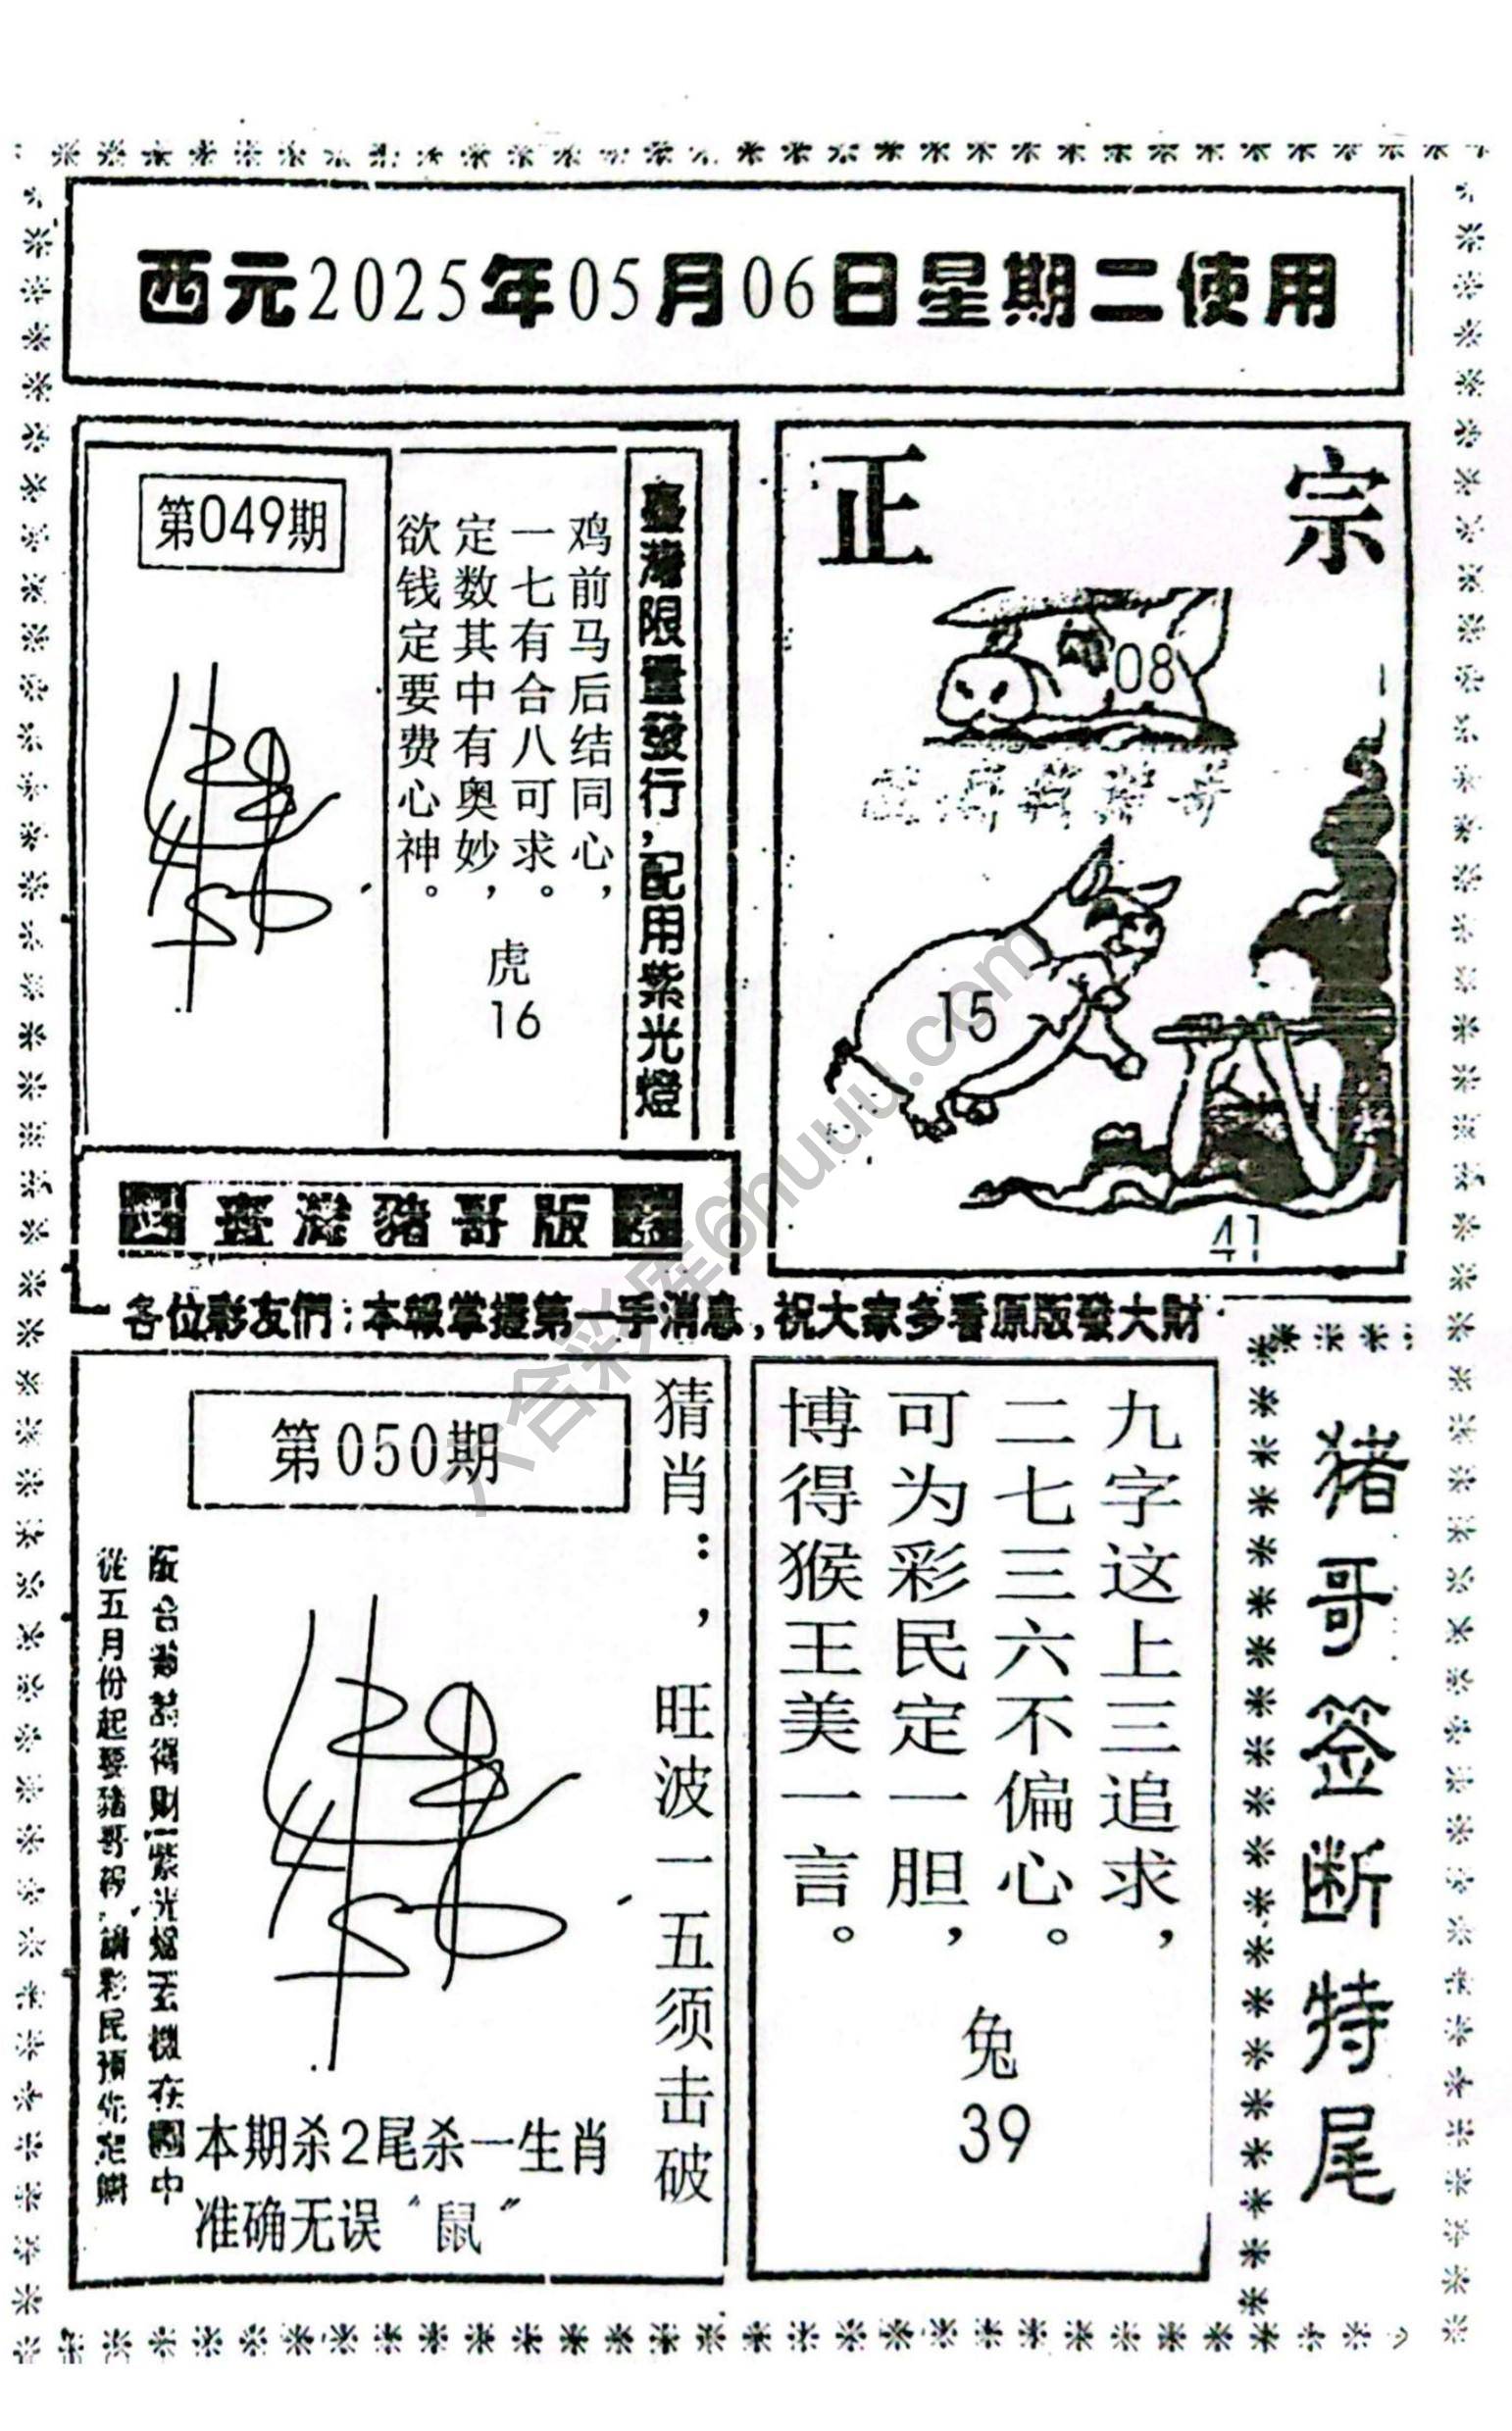 西元2025年05月06日星期二使用
第049期
臺灣限量發行,配用紫光燈
鸡前马后结同心,
一七有合八可求。
定数其中有奥妙,
欲钱定要费心神。
虎
16
正宗
08
15
41
臺灣豬哥版
各位彩友們:本報掌握第一手消息,祝大家多看原版發大財
第050期
猜肖:,旺波一五须击破
紫光燈玄機在圖中
從五月份起要豬哥碼,請彩民預先定購
本期杀2尾杀一生肖
准确无误“鼠”
九字这上三追求,
二七三六不偏心。
可为彩民定一胆,
博得猴王美一言。
兔
39
猪哥签断特尾
六合彩库6huuu.com